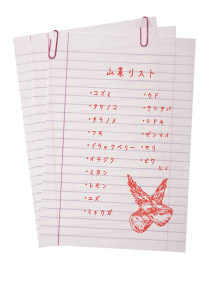 山菜リスト
・コゴミ
・タケノコ
・タラノメ
・フキ
・ブラックベリー
・イチジク
・ミカン
・レモン
・ユズ
・ミョウガ
・ウド
・アシタバ
・シドキ
・ゼンマイ
・セリ
・ビワ
など